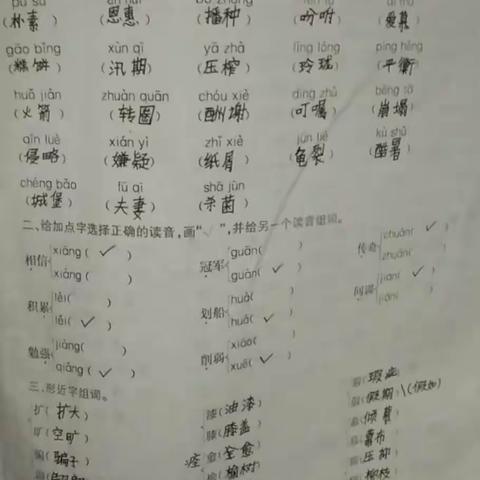 pǔ sù
(朴素) (恩惠) (播种) (吩咐) (爱慕)
gāo bǐng xùn qī yā zhà líng lóng píng héng
(糕饼) (汛期) (压榨) (玲珑) (平衡)
huǒ jiàn zhuàn quān chóu xiè dīng zhǔ bēng tā
(火箭) (转圈) (酬谢) (叮嘱) (崩塌)
qīn luè xián yí zhǐ xiè jūn liè kù shǔ
(侵略) (嫌疑) (纸屑) (龟裂) (酷暑)
chéng bǎo fū qī shā jūn
(城堡) (夫妻) (杀菌)
二、给加点字选择正确的读音,画“√”,并给另一个读音组词。
相信 xiāng( √ ) xiàng( )
冠军 guān( ) guàn( √ )
传奇 chuán( √ ) zhuàn( )
积累 lèi( ) lěi( √ )
划船 huà( ) huá( √ )
间 jiàn( √ ) jiān( )
勉强 jiàng( ) qiǎng( √ )
削弱 xiāo( ) xuē( √ )
三、形近字组词。
扩(扩大) 漆(油漆) (瑕疵)
旷(空旷) 膝(膝盖) (假期) (假如)
骗(骗子) 愈(痊愈) (倾慕)
榆(榆树) (幕布)